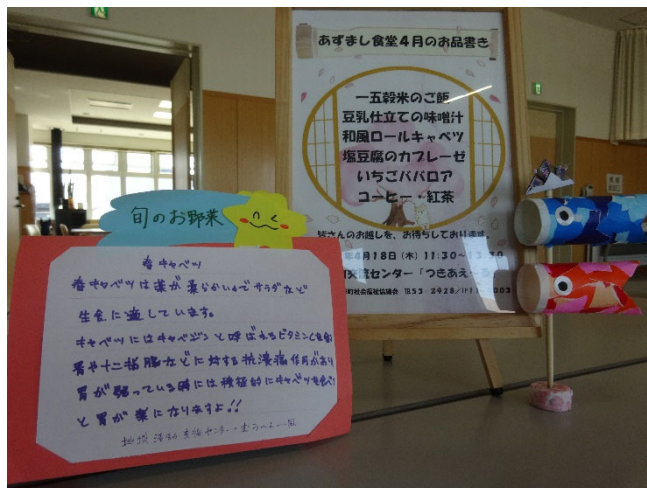 あずまし食堂4月のお品書き
一五穀米のご飯
豆乳仕立ての味噌汁
和風ロールキャベツ
塩豆腐のカプレーゼ
いちごババロア
コーヒー・紅茶
皆さんのお越しを、お待ちしております。
年4月18日(木)11:30~13:30
交流センター「つきあえ
町社会福祉協議会 ℡53-2928/IP
旬のお野菜
春キャベツ
春キャベツは葉が柔らかいのでサラダなど
生食に適しています。
キャベツにはキャベジンと呼ばれるビタミン
胃や十二指腸などに対する抗潰瘍作用があり
胃が弱っている時には積極的にキャベツを食べ
と胃が楽になりますよ!!
地域活動支援センター